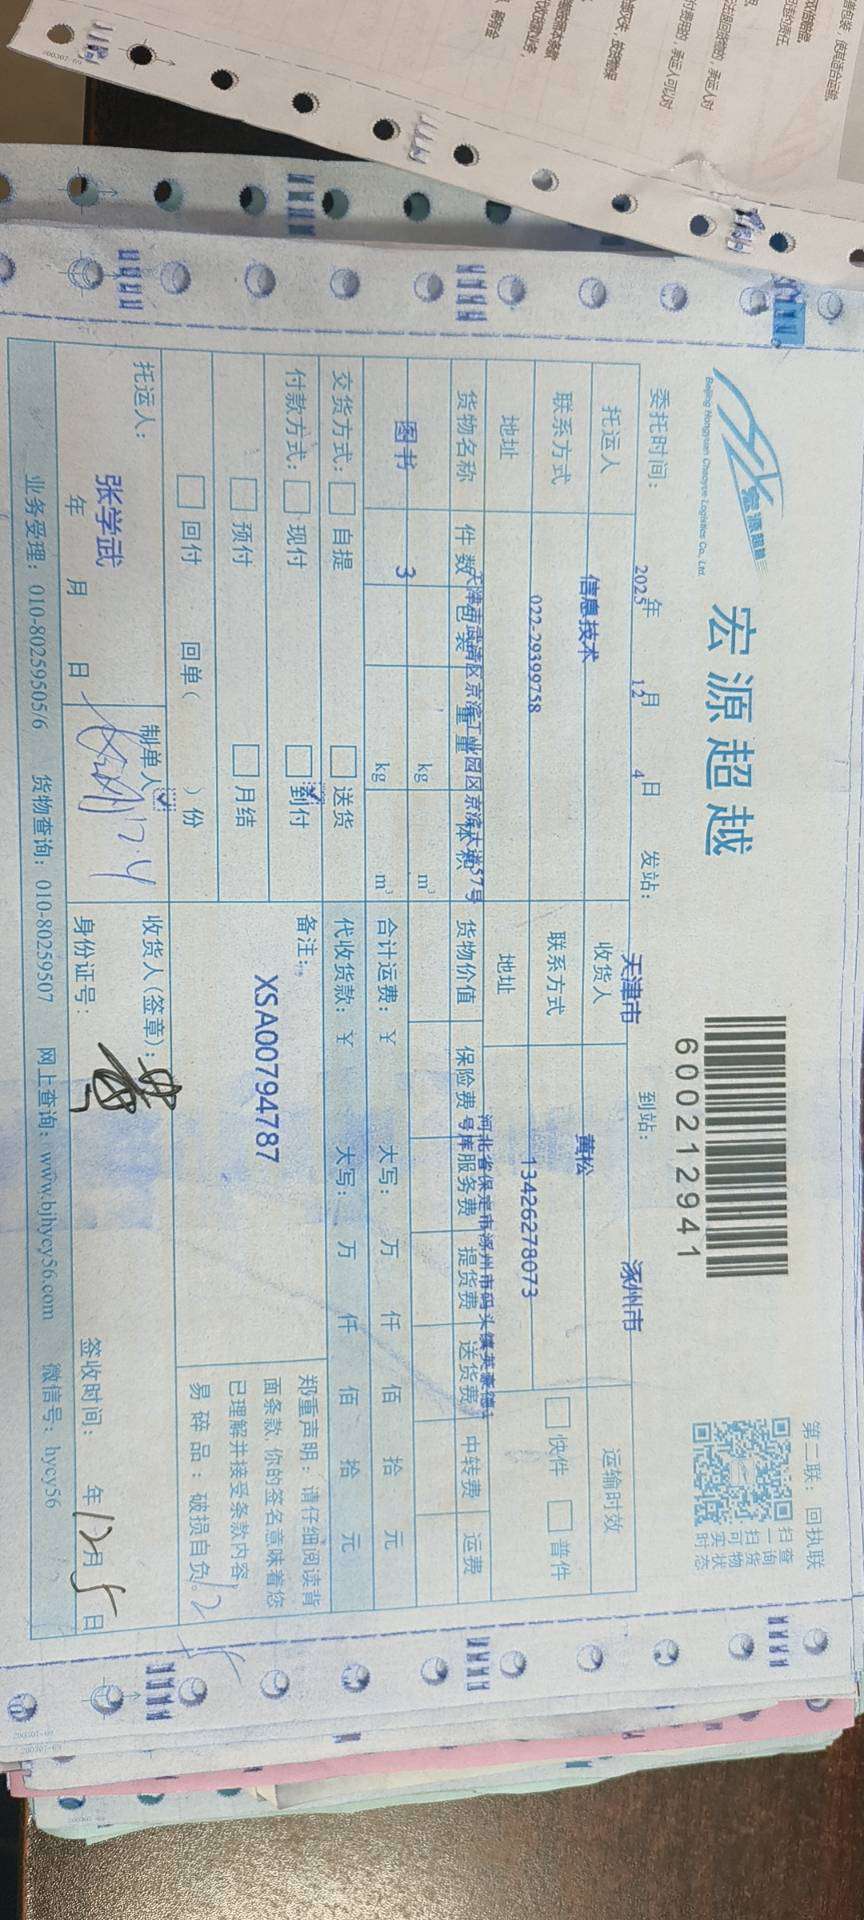 第二联：回执联
宏源超越
宏源超越
Beijing Hongyuan Chaoyue Logistics Co., Ltd.
600212941
扫一扫可实时
查询货物状态
委托时间： 2025年 12月 4日 发站： 天津市 到站： 涿州市
托运人 信息技术 收货人 黄松 运输时效
联系方式 022-29399758 联系方式 13426278073 快件 普件
地址 天津市武清区京滨工业园区京滨大道57号 地址 河北省保定市涿州市码头镇英豪德1
号库
货物名称 件数 包装 重量 体积 货物价值 保险费 服务费 提货费 送货费 中转费 运费
图书 3 kg m³
kg m³
合计运费：¥ 大写： 万 仟 佰 拾 元
交货方式： 自提 送货 代收货款：¥ 大写： 万 仟 佰 拾 元
付款方式： 现付 到付 备注：
预付 月结 XSA00794787
回付 回单（ ）份
郑重声明：请仔细阅读背
面条款，你的签名意味着您
已理解并接受条款内容
易碎品：破损自负
托运人： 张学武 制单人 收货人（签章）：
年 月 日 身份证号： 签收时间： 年 12月 5日
业务受理：010-80259505/6 货物查询：010-80259507 网上查询：www.bjhycy56.com 微信号：hycy56